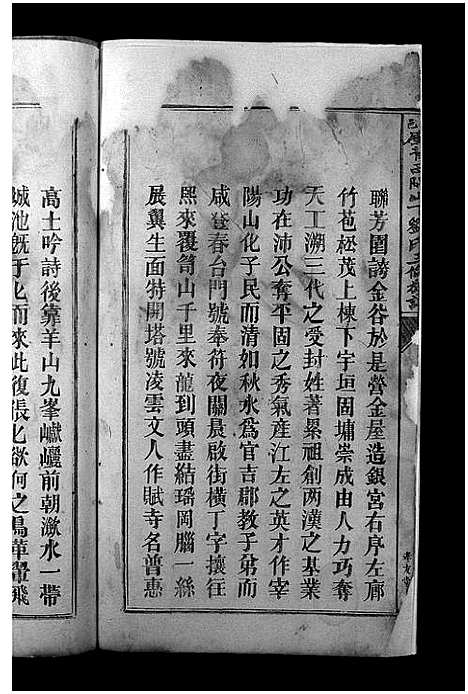 聯芳園誇金谷於是營金屋造銀宮右序左廊
竹苞松茂上棟下宇垣固墉崇成由人力巧奪
天工溯三代之受封姓著累祖創兩漢之基業
功在沛公奪平固之秀氣產江左之英才作宰
陽山化子民而清如秋水為官吉郡教子弟而
咸登春台門號奉符夜關晨啟街橫丁字攘往
熙來覆笥山千里來龍到頭盡結瑤岡腦一絲
展翼生面特開塔號凌雲文人作賦寺名普惠
高士吟詩後靠羊山九峯巘巇前朝潋水一帶
城池既于化而來此復張化欲何之鳥革翬飛